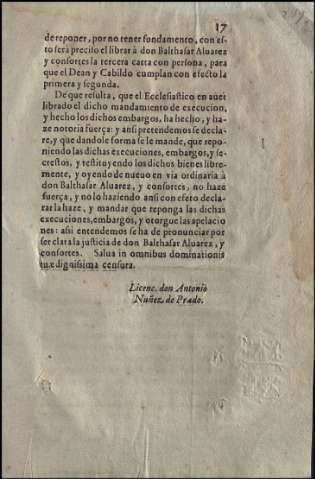 17
de reponer, por no tener fundamento, con es-
to serà preciso el librar à don Balthasar Aluarez
y consortes la tercera carta con persona, para
que el Dean y Cabildo cumplan con efecto la
primera y segunda.
De que resulta, que el Ecclesiastico en auer
librado el dicho mandamiento de execucion,
y hecho los dichos embargos, ha hecho, y ha-
ze notoria fuerça: y ansi pretendemos se decla-
re, y que dandole forma se le mande, que repo-
niendo las dichas execuciones, embargos, y se-
crestos, y restituyendo los dichos bienes libre-
mente, y oyendo de nueuo en via ordinaria à
don Balthasar Aluarez, y consortes, no haze
fuerça, y no lo haziendo ansi con efeto decla-
rar la haze, y mandar que reponga las dichas
execuciones, embargos, y otorgue las apelacio
nes: asi entendemos se ha de pronunciar por
ser clara la justicia de don Balthasar Aluarez, y
consortes. Salua in omnibus dominationis
tuæ dignissima censura.
Licenc. don Antonio
Nuñez de Prado.